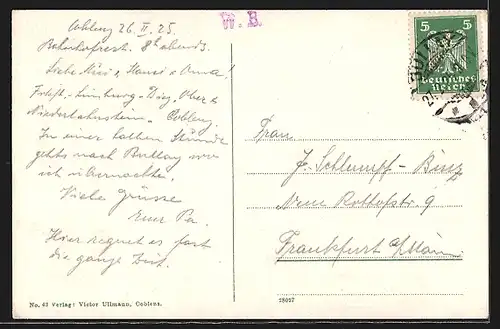 Coblenz 26. II. 25.
Bahnhofrest. 8h abends.
Liebe Mizi, Hansi & Anna!
Limburg - Diez, Ober &
Niederlahnstein - Coblenz.
In einer halben Stunde
gehts nach Bullay wo
ich übernachte.
Viele Grüsse
Euer Pa.
Hier regnet es fast
die ganze Zeit.
No. 41 Verlag: Victor Ullmann, Coblenz.
28027
5 5
Deutsches
Reich
Frau
J. Schlumpf-Binz
Neue Rothofstr. 9
Frankfurt a/Main